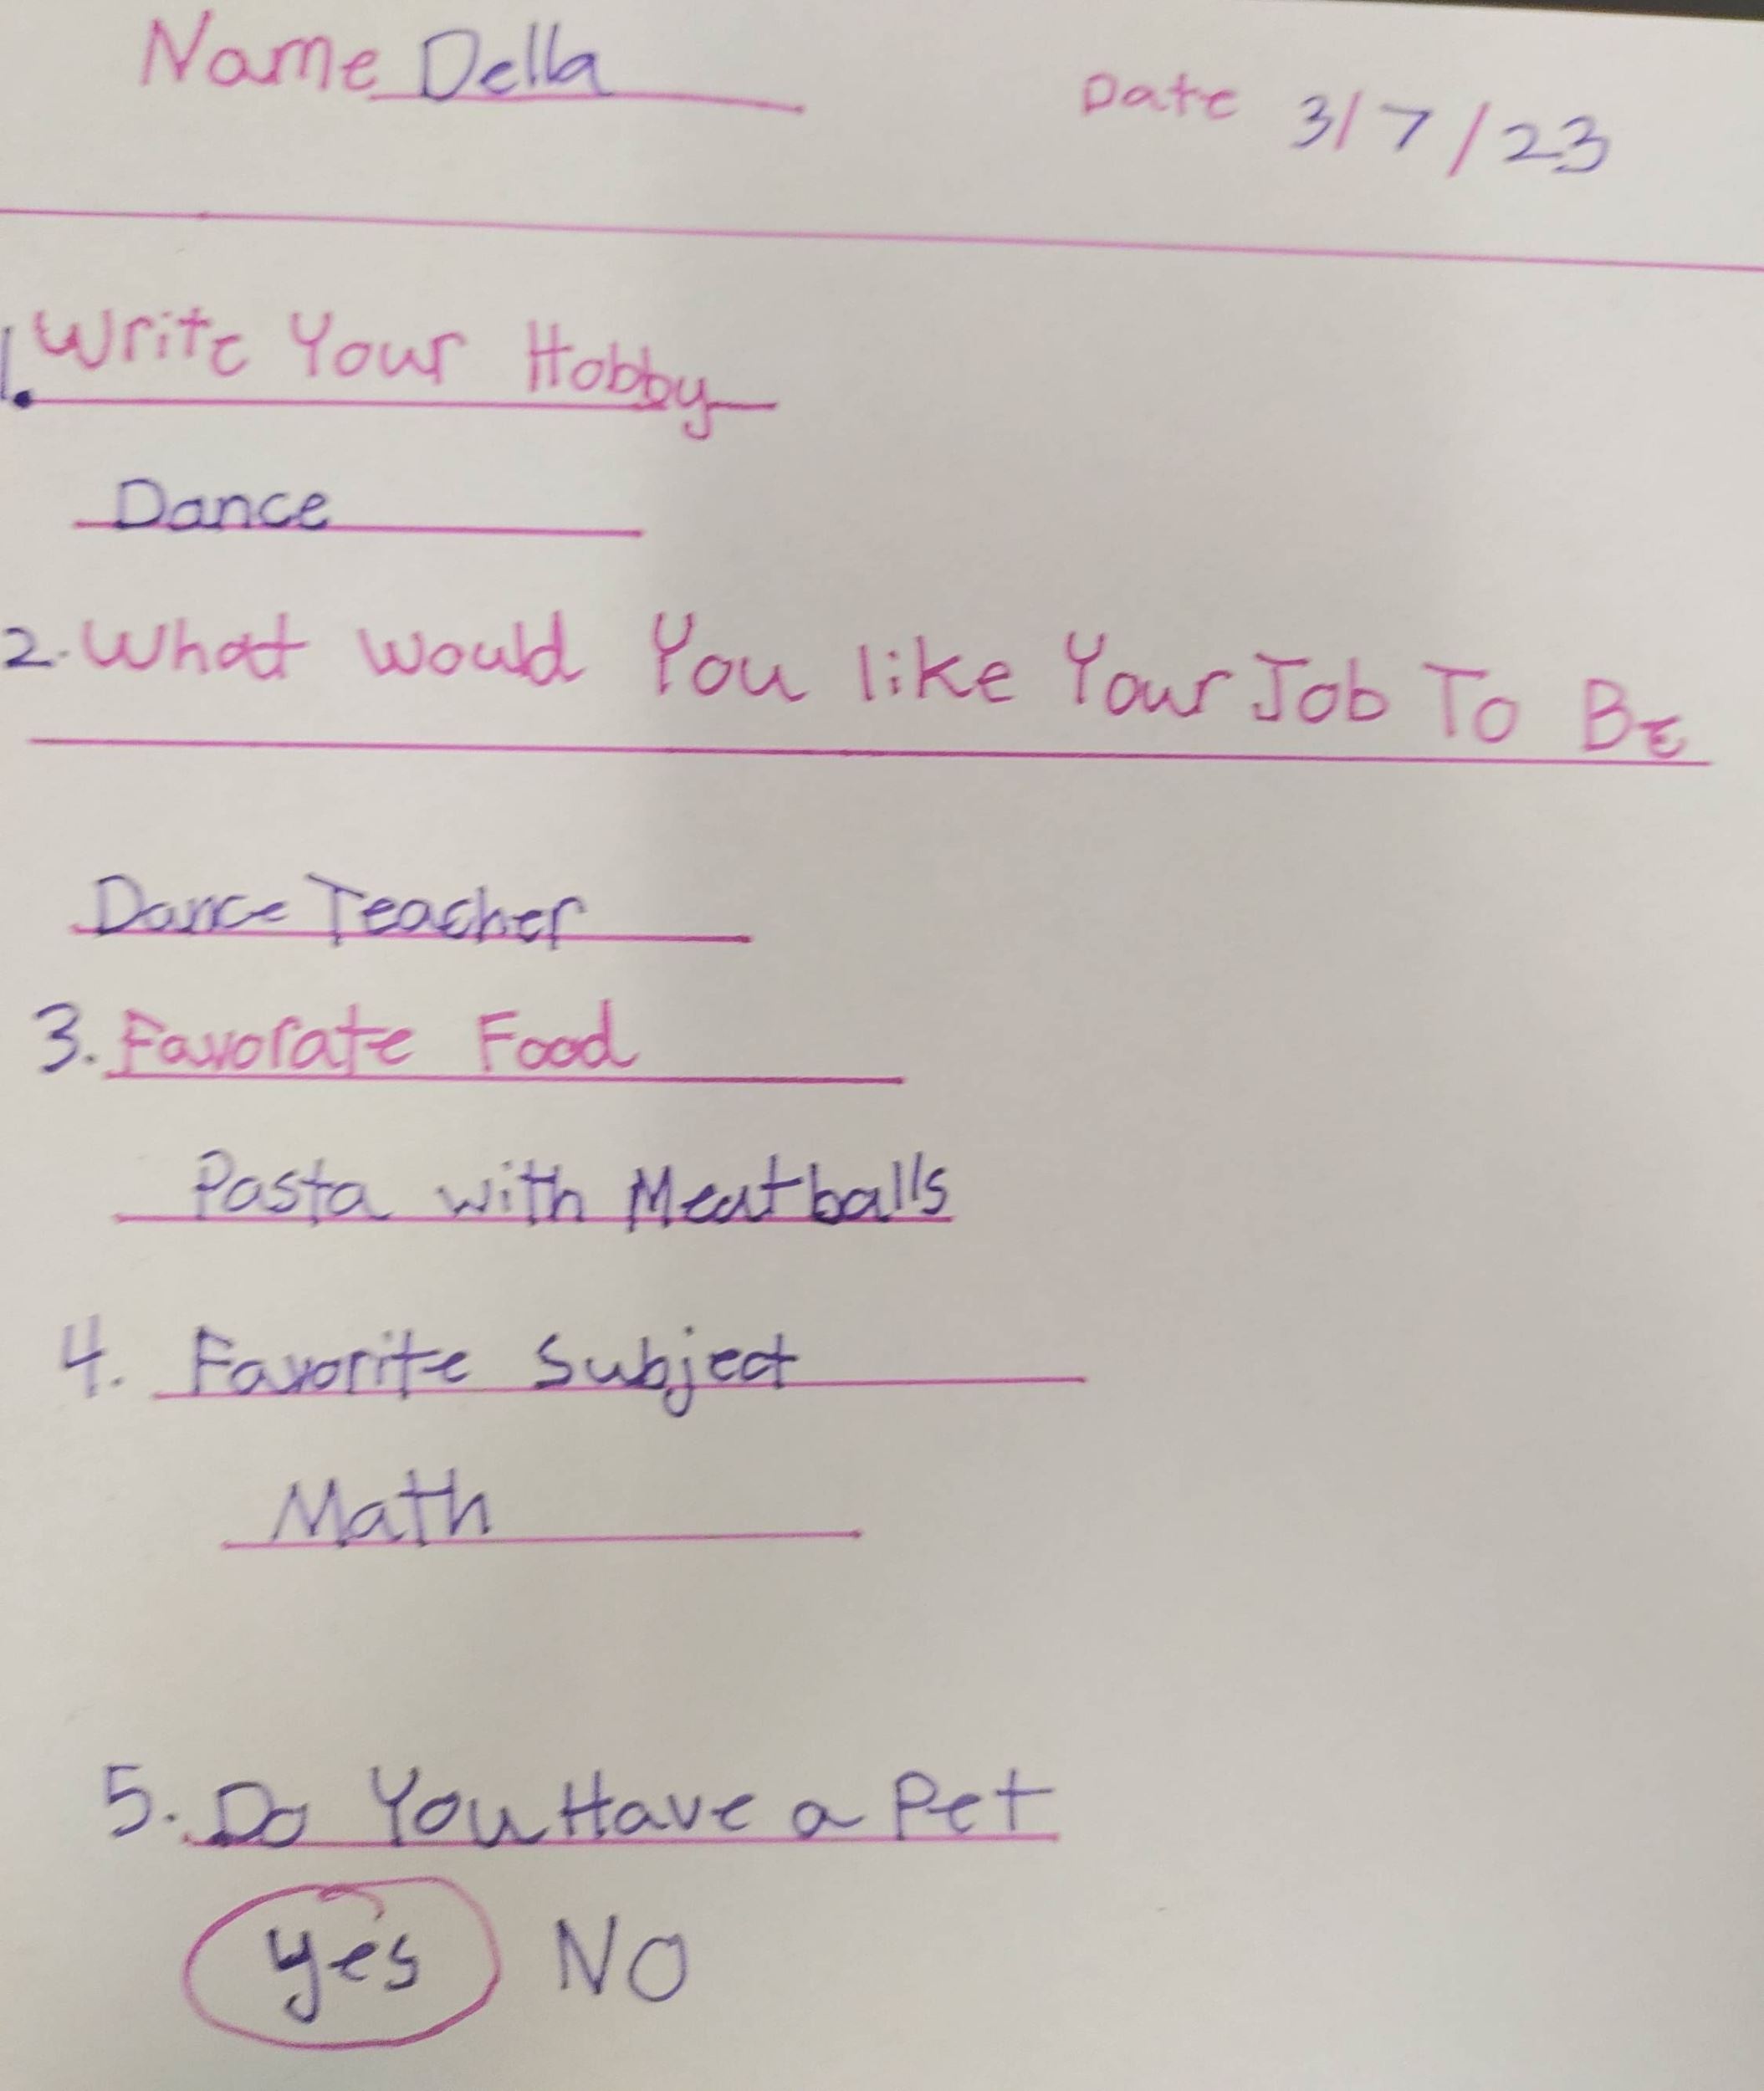 Name Della Date 3/7/23
1. Write Your Hobby
Dance
2. What would You like Your Job To Be
Dance Teacher
3. Favorate Food
Pasta with Meatballs
4. Favorite Subject
Math
5. Do You Have a Pet
yes NO